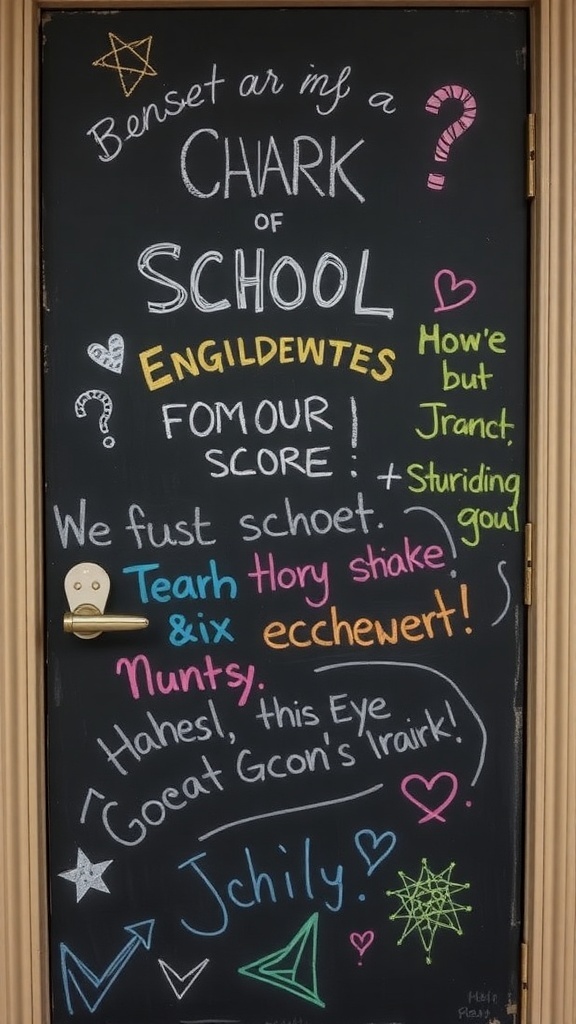 Benset ar inf a
CHARK
OF
SCHOOL
ENGILDEWTES
FOMOUR
SCORE!
How'e
but
Jranct.
+ Sturiding
goul
We fust schoet.
Tearh Hory shake
&ix ecchewert!
Nuntsy.
Hahesl, this Eye
Goeat Gcon's Irairk!
Jchily.